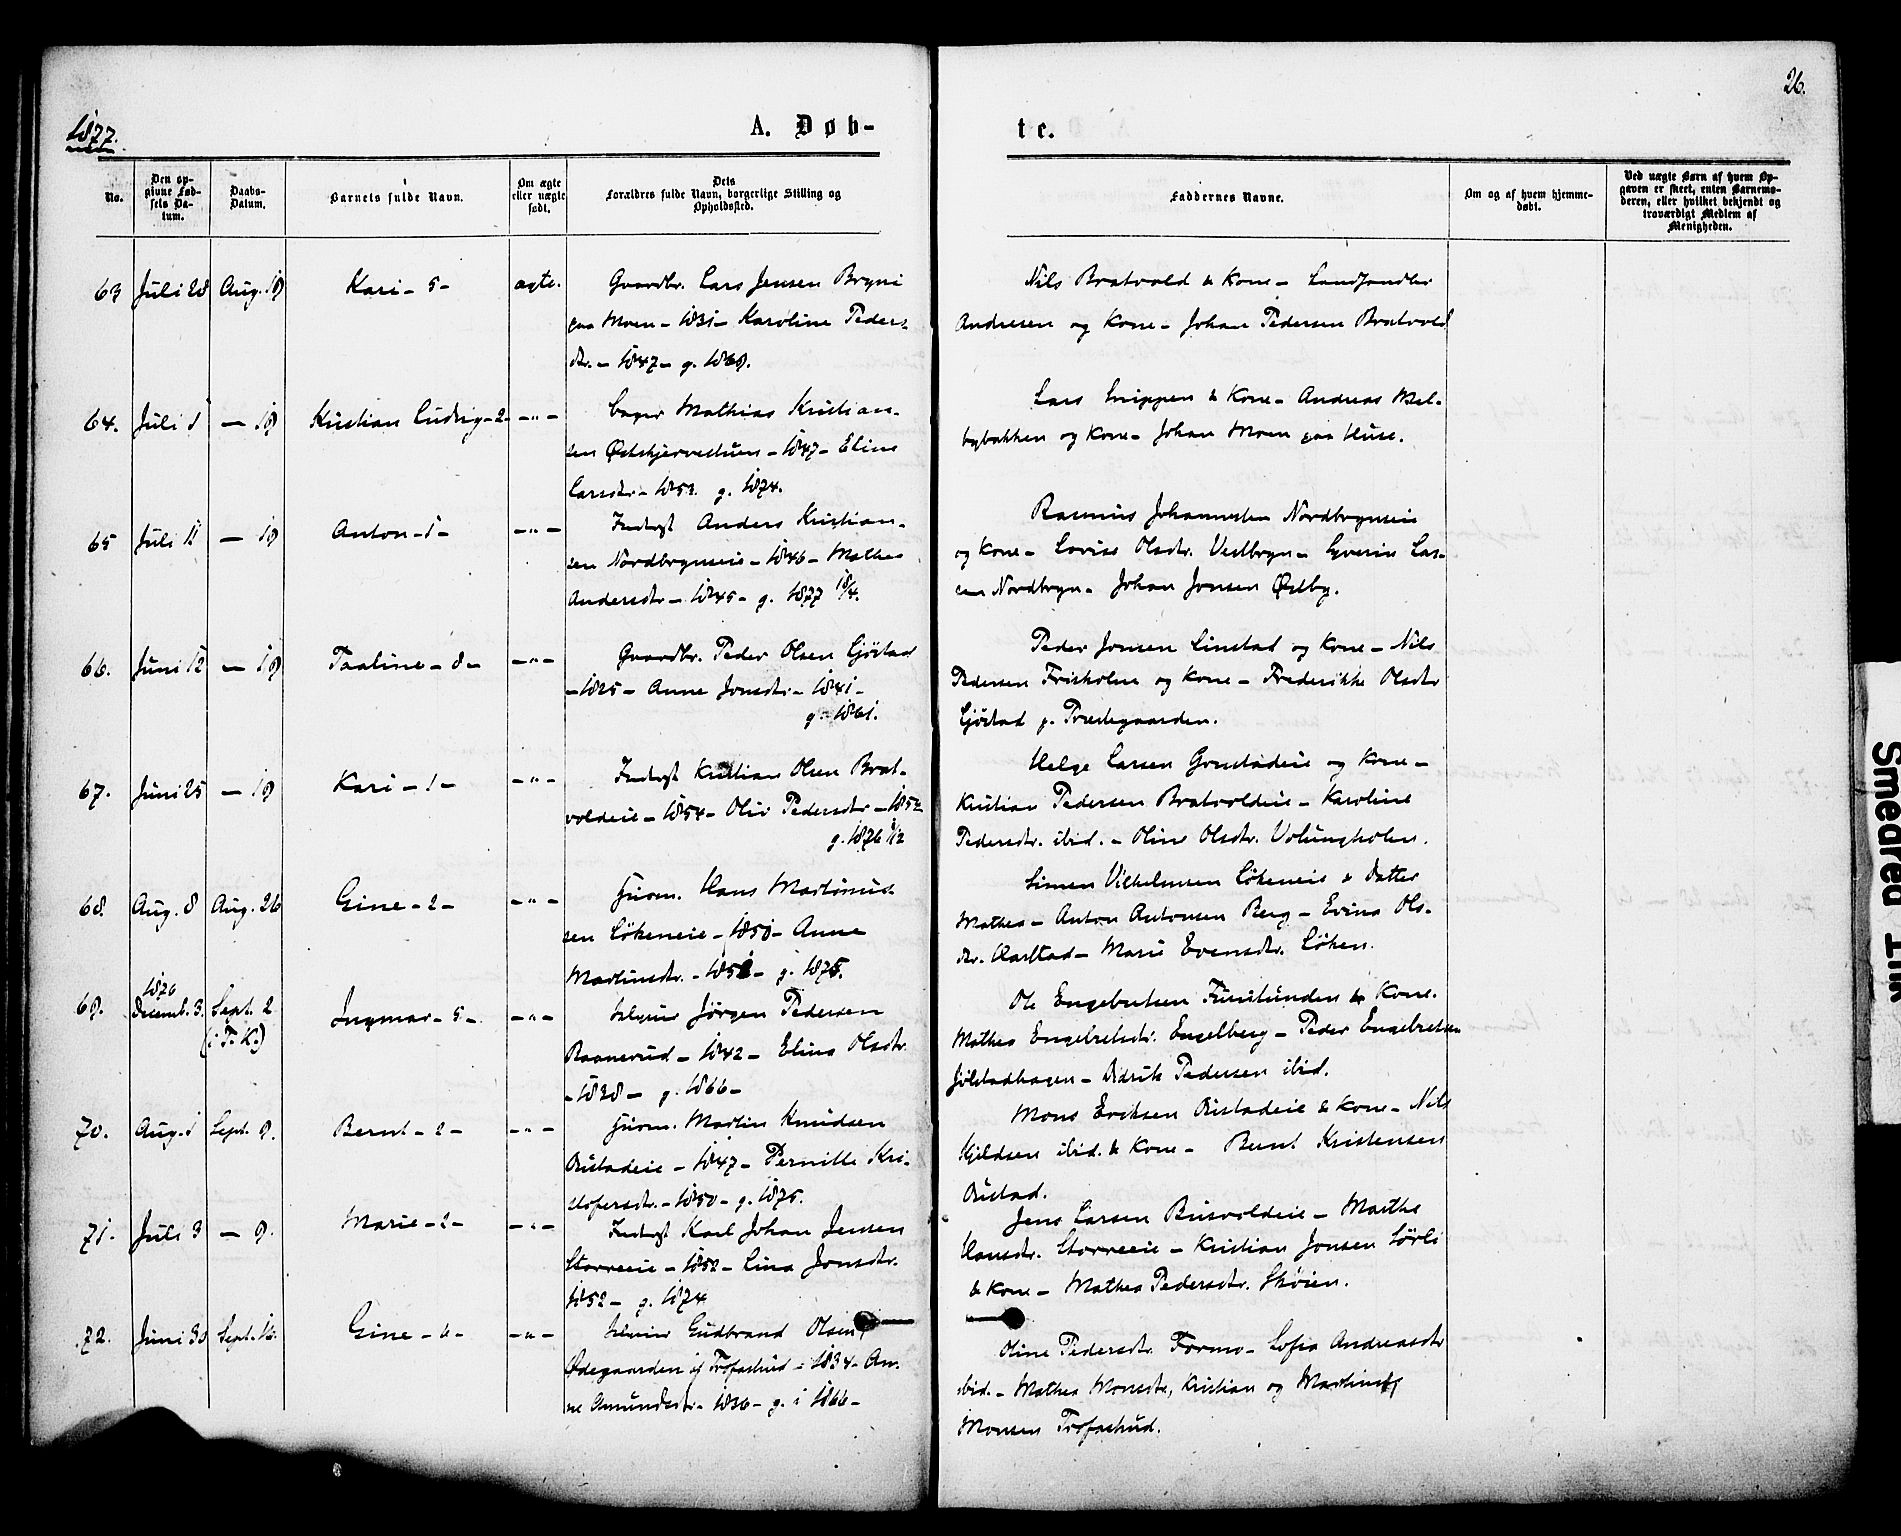 26.
1877.
A. Døb-
te.
No.
Den op-
givne Fød-
sels Da-
tum.
Daabs-
Datum.
Barnets fulde Navn.
Om ægte
eller uægte
født.
Dets
Forældres fulde Navn, borgerlige Stilling og
Opholdssted.
Faddernes Navne.
Om og af hvem hjemme-
døbt.
Ved uægte Børn af hvem Op-
gaven er skeet, enten Barnemo-
deren, eller hvilket bekjendt og
troværdigt Medlem af
Menigheden.
63 Juli 28 Aug. 19 Kari - 5 - ægte.
Gaardbr. Lars Jensen Bryni
paa Moen - 1831 - Karoline Peders-
dtr. - 1847 - g. 1868.
Nils Bratvold & Kone - Landhandler
Andresen og Kone - Johan Pedersen Bratvold
64. Juli 1 - 19 Kristian Ludvig - 2 - - " -
Mathias Kristian-
sen - 1847 - Eline
Larsdtr - 1853. g. 1874.
Lars & Kone - Andreas Mel-
bybakken og Kone - Johan Moen paa Huse.
65 Juli 11 - 19 Anton - 1 - - " -
Inderst Anders Kristian-
sen Nordbrynseie - 1846 - Mathea
Andersdtr - 1845 - g. 1877 18/4.
Rasmus Johannessen Nordbrynseie
og Kone - Lovise Olsdtr. Vestbryn - Syverin Lar-
sen Nordbryn - Johan Jonsen Østby.
66. Juni 12 - 19 Paaline - 8 - - " -
Gaardbr. Peder Olsen Gjöstad
- 1825 - Anne Jonsdtr. - 1841 -
g. 1861.
Peder Jonsen Linstad og Kone - Nils
Pedersen Frisholm og Kone - Frederikke Olsdtr
Gjöstad p. Præstegaarden.
67. Juni 25 - 19 Kari - 1 - - " -
Inderst Kristian Olsen Brat-
voldeie - 1854 - Oliv Pedersdtr - 1852
g. 1876
Helge Larsen Gonstadeie og Kone -
Kristian Pedersen Bratvoldeie - Karoline
Pedersdtr. ibid. - Oline Olsdtr. Volungholen.
68. Aug. 8 Aug. 26 Gine - 2 - - " -
Huusm. Hans Martinus-
sen Lökeneie - 1850 - Anne
Martinsdtr. - - g. 1875.
Simen Vilhelmsen Lökeneie & Datter
Mathea - Anton Antonsen Berg - Evina Ols-
dtr. Aarstad - Marie Evensdtr. Löken.
69. 1876
Decemb. 3. Sept. 2
(i T. K.) Ingmar - 5 - - " -
Selveier Jørgen Pedersen
Raanerud - 1842 - Elina Olsdtr.
- 1838 - g. 1866 -
Ole Engebretsen Furulunden & Kone.
Mathea Engebretsdtr. Engelberg - Peder Engebretsen
Jölstadhagen - Didrik Pedersen ibid.
70. Aug. 1 Sept. 9. Bernt - 2 - - " -
Huusm. Martin Knudsen
Ristadeie - 1847 - Pernille Kri-
stofersdtr. - 1850 - g. 1875.
Mons Eriksen Ristadeie & Kone - Nils
Kjeldsen ibid. & Kone - Bernt Kristensen
Ristad.
71. Juli 3 - 9. Marie - 2 - - " -
Inderst Karl Johan Jensen
Storreeie - 1852 - Lina Jonsdtr.
1852 - g. 1874
Jens Larsen Busvoldeie - Marthe
Hansdtr. Storreeie - Kristian Jonsen Sörli
& Kone - Mathea Pedersdtr. Skøien.
72. Juni 30 Sept. 16. Gine - 6 - - " -
Selveier Gudbrand Olsen
Ødegaarden af Trofastrud - 1834 - An-
ne Amundsdtr. - 1836 - g. i 1866 -
Oline Pedersdtr. Formo - Sofia Andreasdtr
ibid. - Mathea Monsdtr, Kristian og Martinus
Monsen Trofastrud.
Smeared Ink